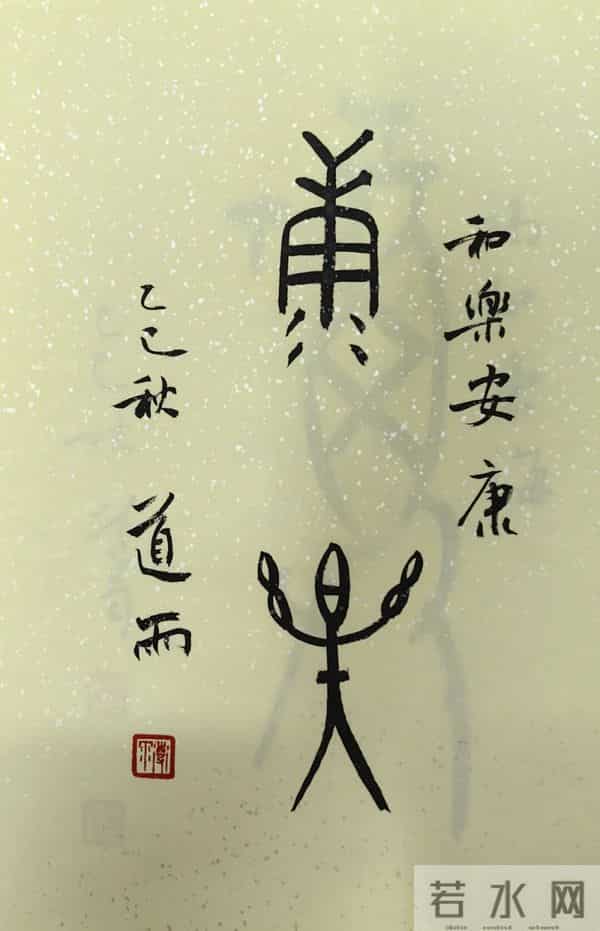 和樂安康
康樂
乙巳秋 道雨
若水网